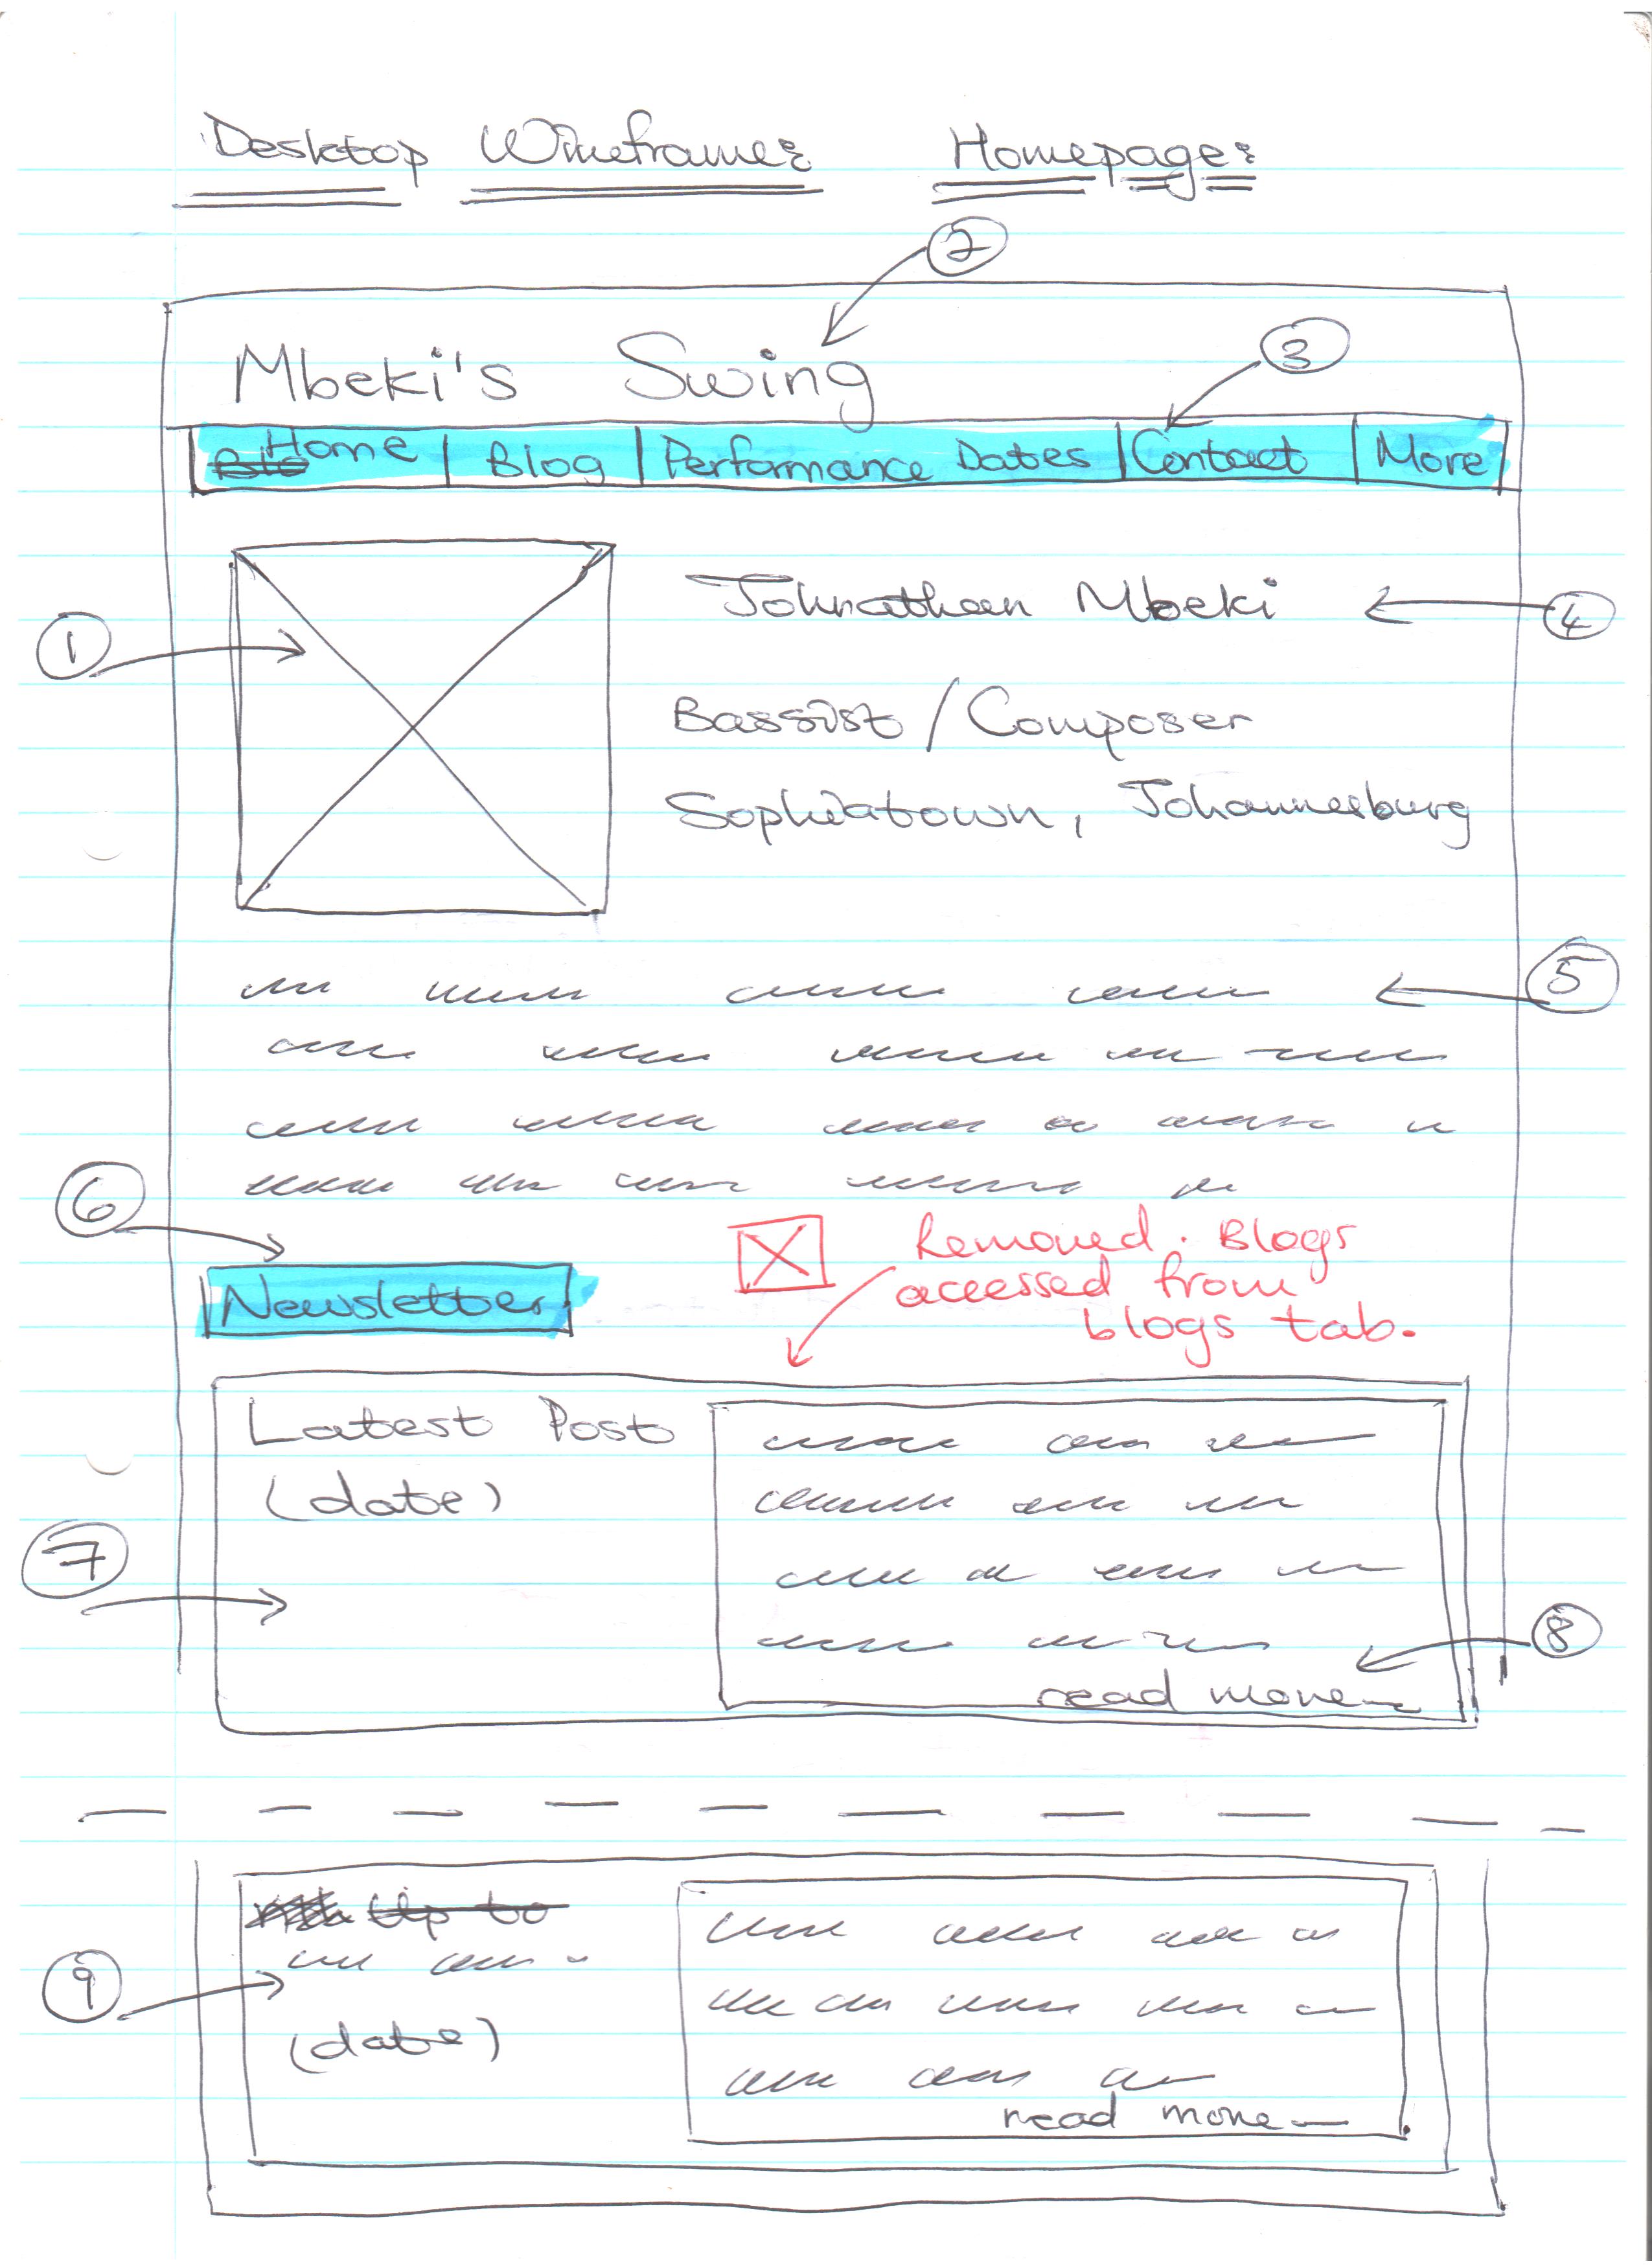 Desktop Wireframe: Homepage:
2
Mbeki's Swing
3
Home | Blog | Performance Dates | Contact | More
1
Johnathan Mbeki
4
Bassist / Composer
Sophiatown, Johannesburg
5
6
Removed. Blogs
accessed from
blogs tab.
Newsletter
Latest Post
(date)
7
8
read more
Up to
9
(date)
read more